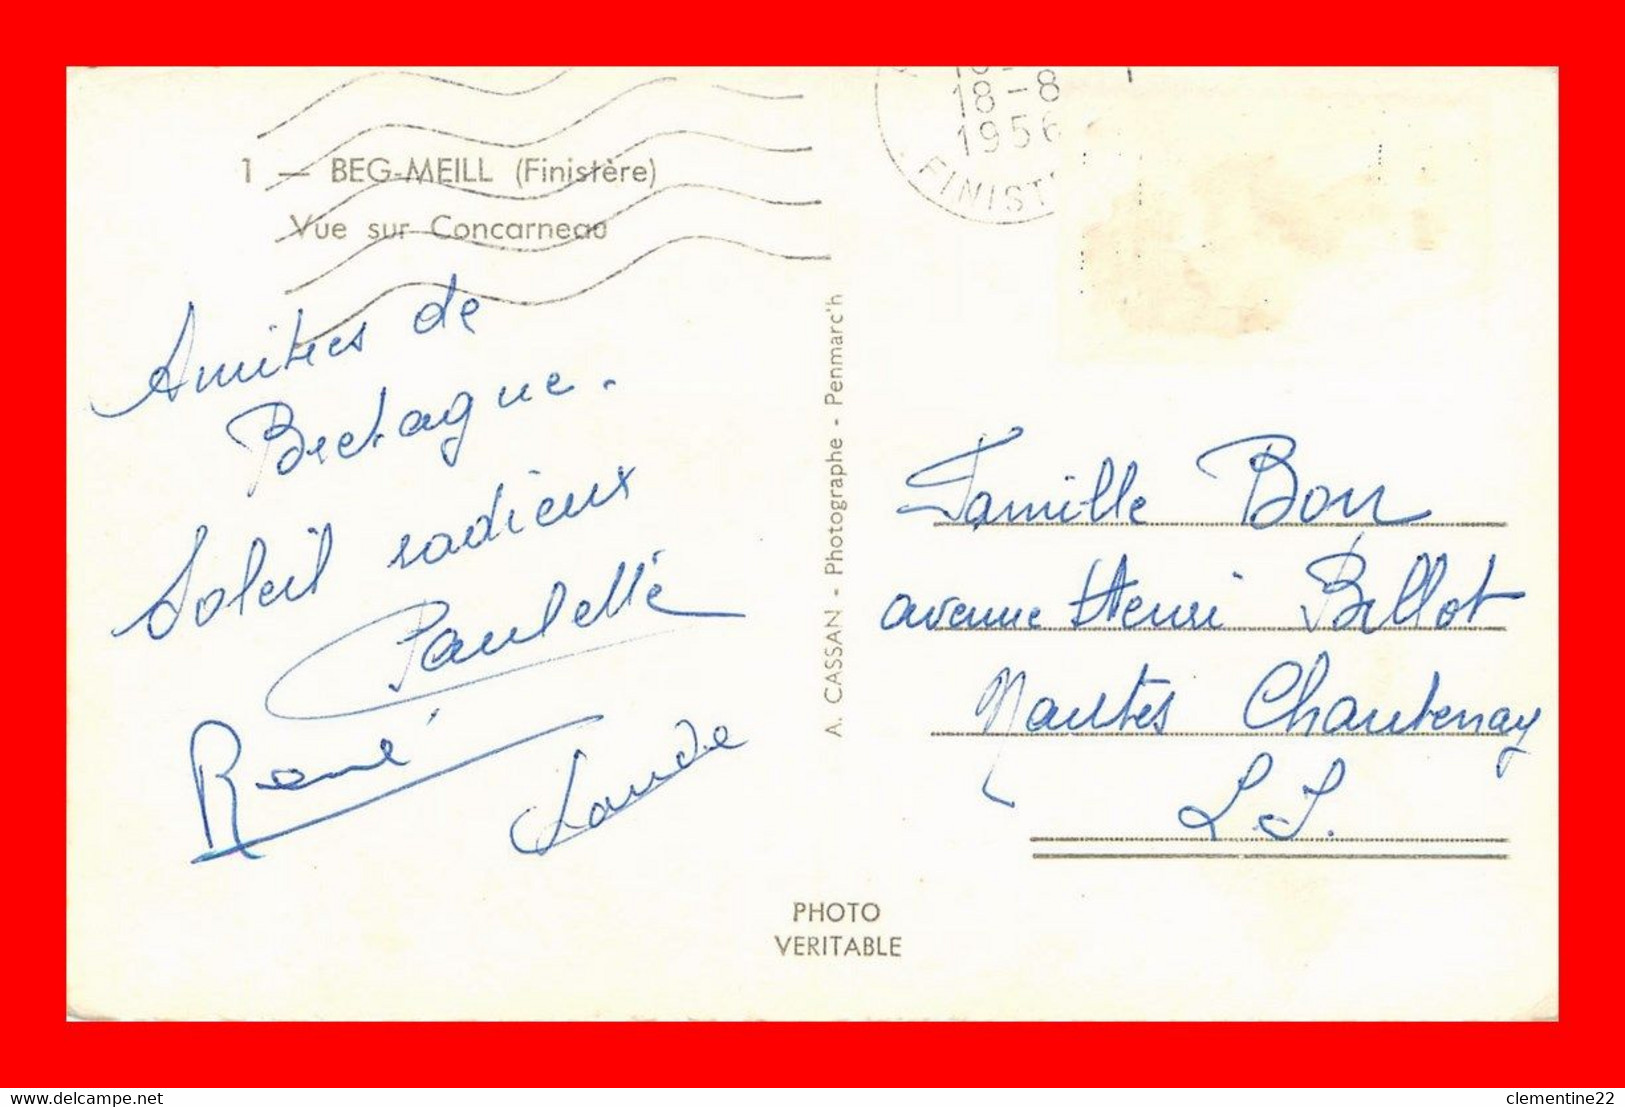 18-8
1956
FINIST
1 — BEG-MEILL (Finistère)
Vue sur Concarneau
Amitiés de
Bretagne.
Soleil radieux
Paulette
René
A. CASSAN - Photographe - Penmarc'h
Famille Bon
avenue Henri Billot
Nantes Chantenay
L.I.
PHOTO
VERITABLE
www.delcampe.net
clementine22